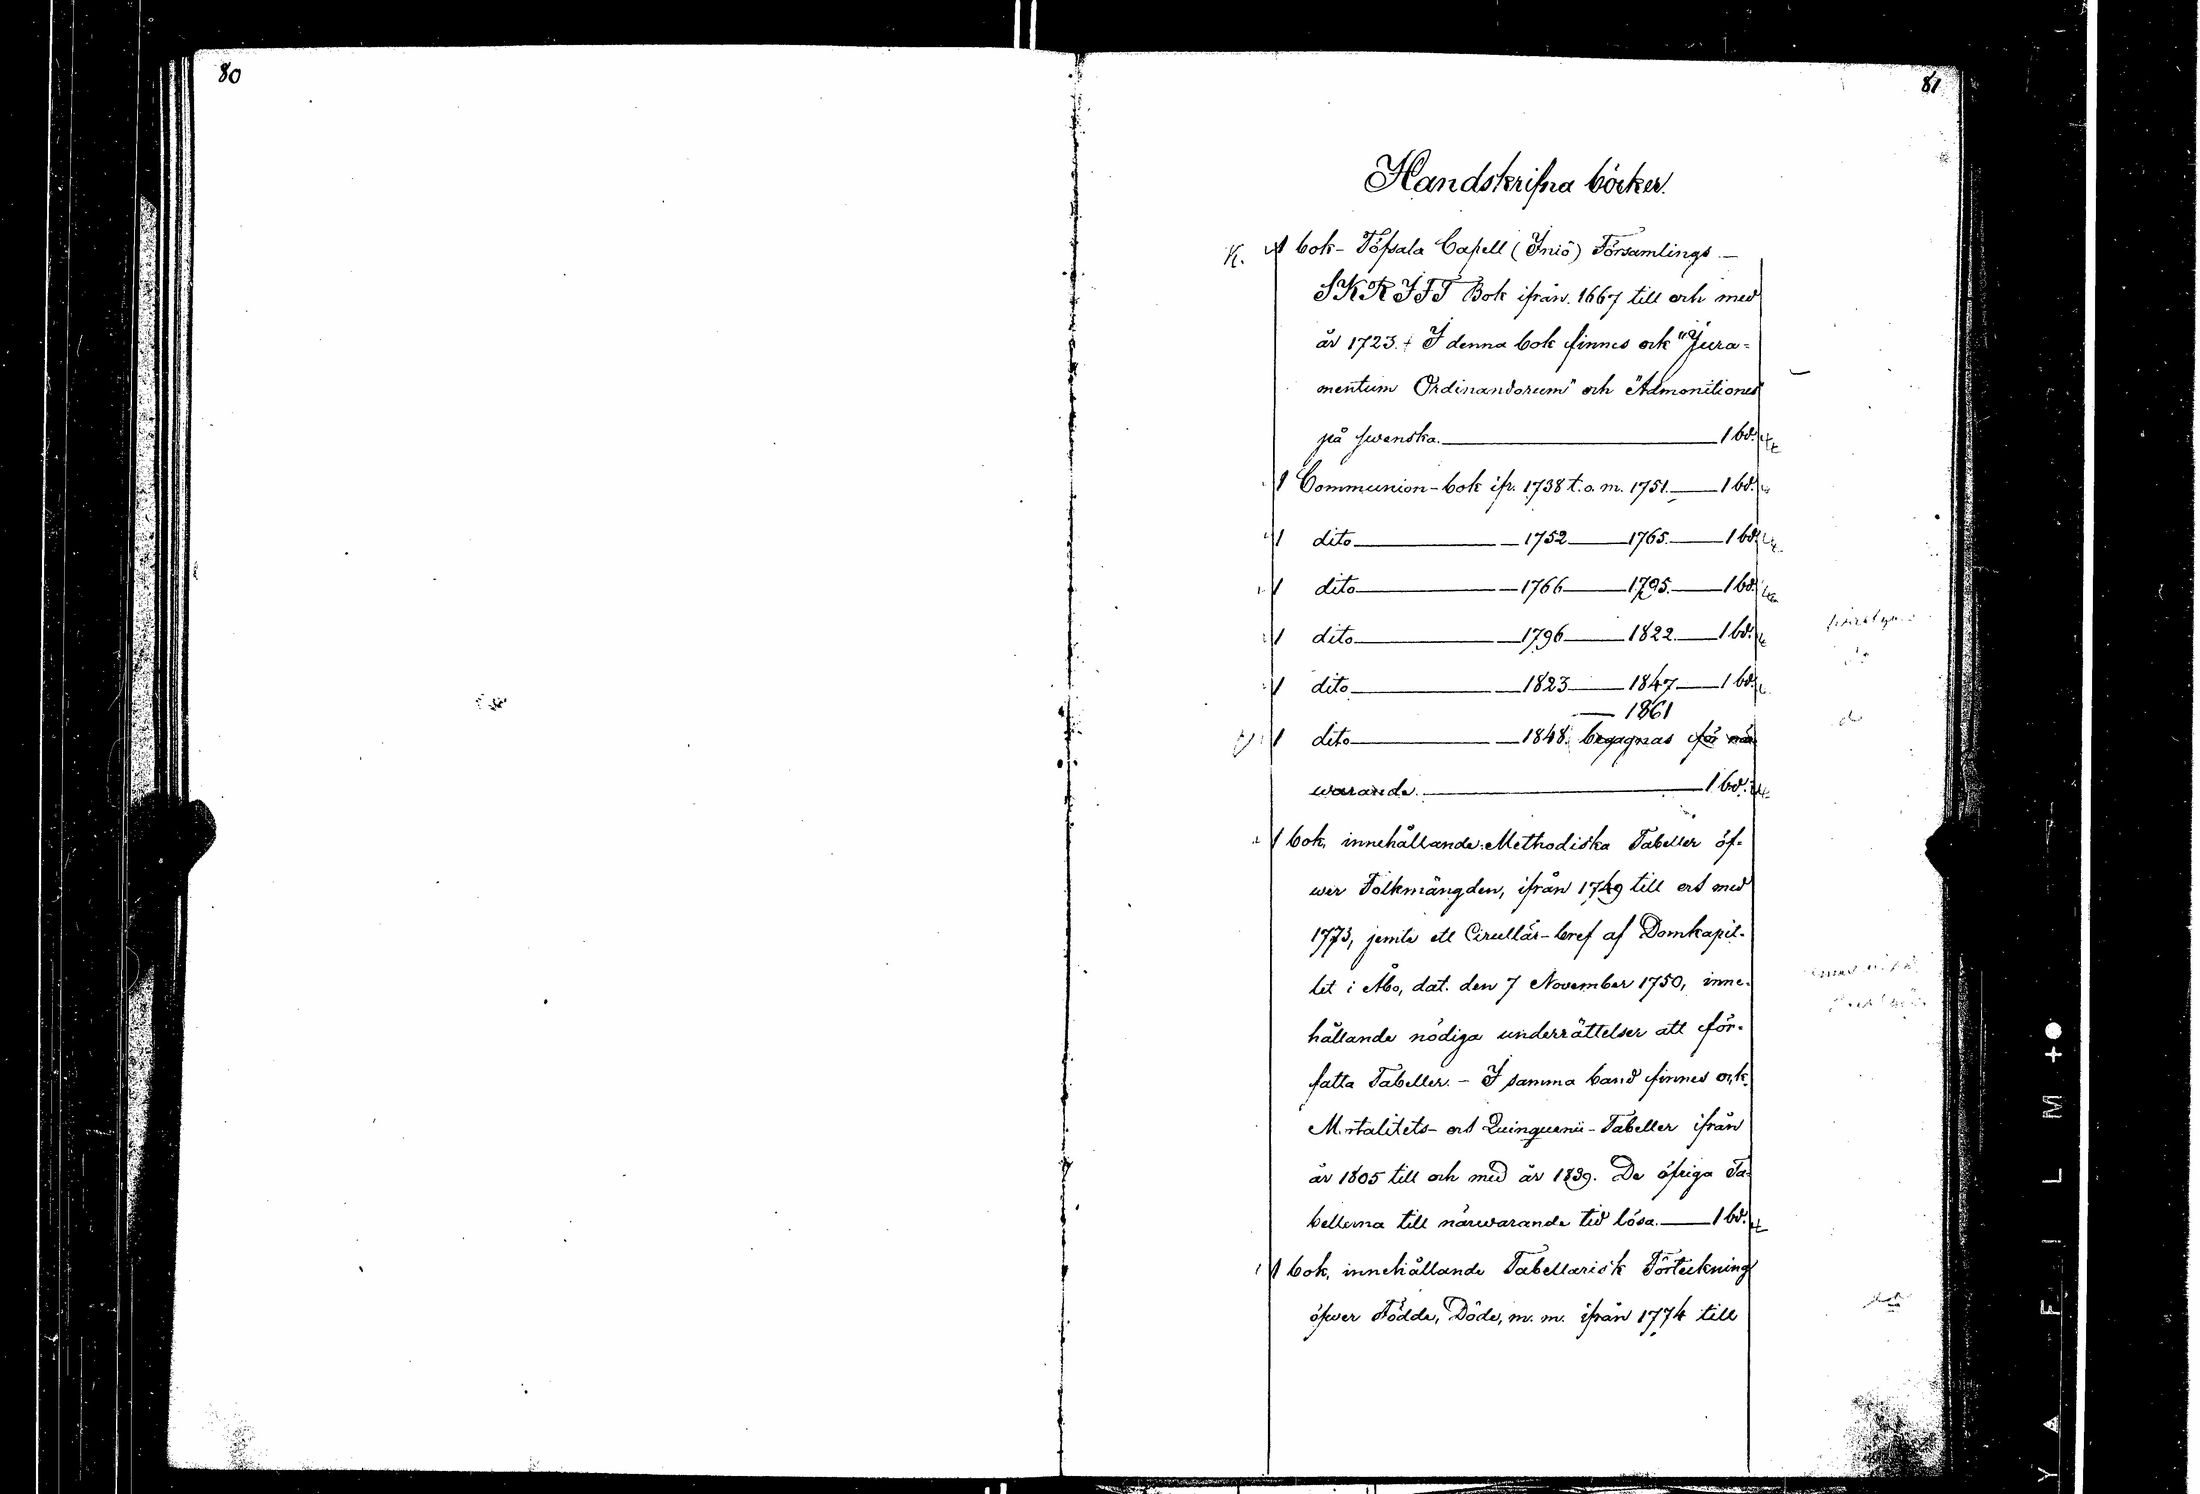 80
81
Handskrifna böcker.
K. 1 bok - Töfsala Capell (Iniö) Församlings -
SKRIFT Bok ifrån. 1667 till och med
år 1723. + I denna bok finnes ock "Jura=
mentum Ordinandorum" och "Admonitiones"
på swenska. 1 bd.
1 Communion-bok ifr. 1738 t.o.m. 1751. 1 bd.
1 dito 1752 1765. 1 bd.
1 dito 1766 1795. 1 bd.
1 dito 1796 1822. 1 bd.
1 dito 1823 1847 1 bd.
1861
1 dito 1848. begagnas för när
warande. 1 bd.
1 bok, innehållande: Methodiska Tabeller öf-
wer Folkmängden, ifrån 1749 till och med
1773, jemte ett Cirullär-bref af Domkapit-
let i Åbo, dat. den 7 November 1750, inne-
hållande nödiga underrättelser att för-
fatta Tabeller. - I samma band finnes ock
Mortalitets- och Quinquenii-Tabeller ifrån
år 1805 till och med år 1839. De öfriga Ta-
bellerna till närwarande tid lösa. 1 bd.
1 bok, innehållande Tabellarisk Förteckning
öfwer Födde, Döde, m. m. ifrån 1774 till
YAFILM